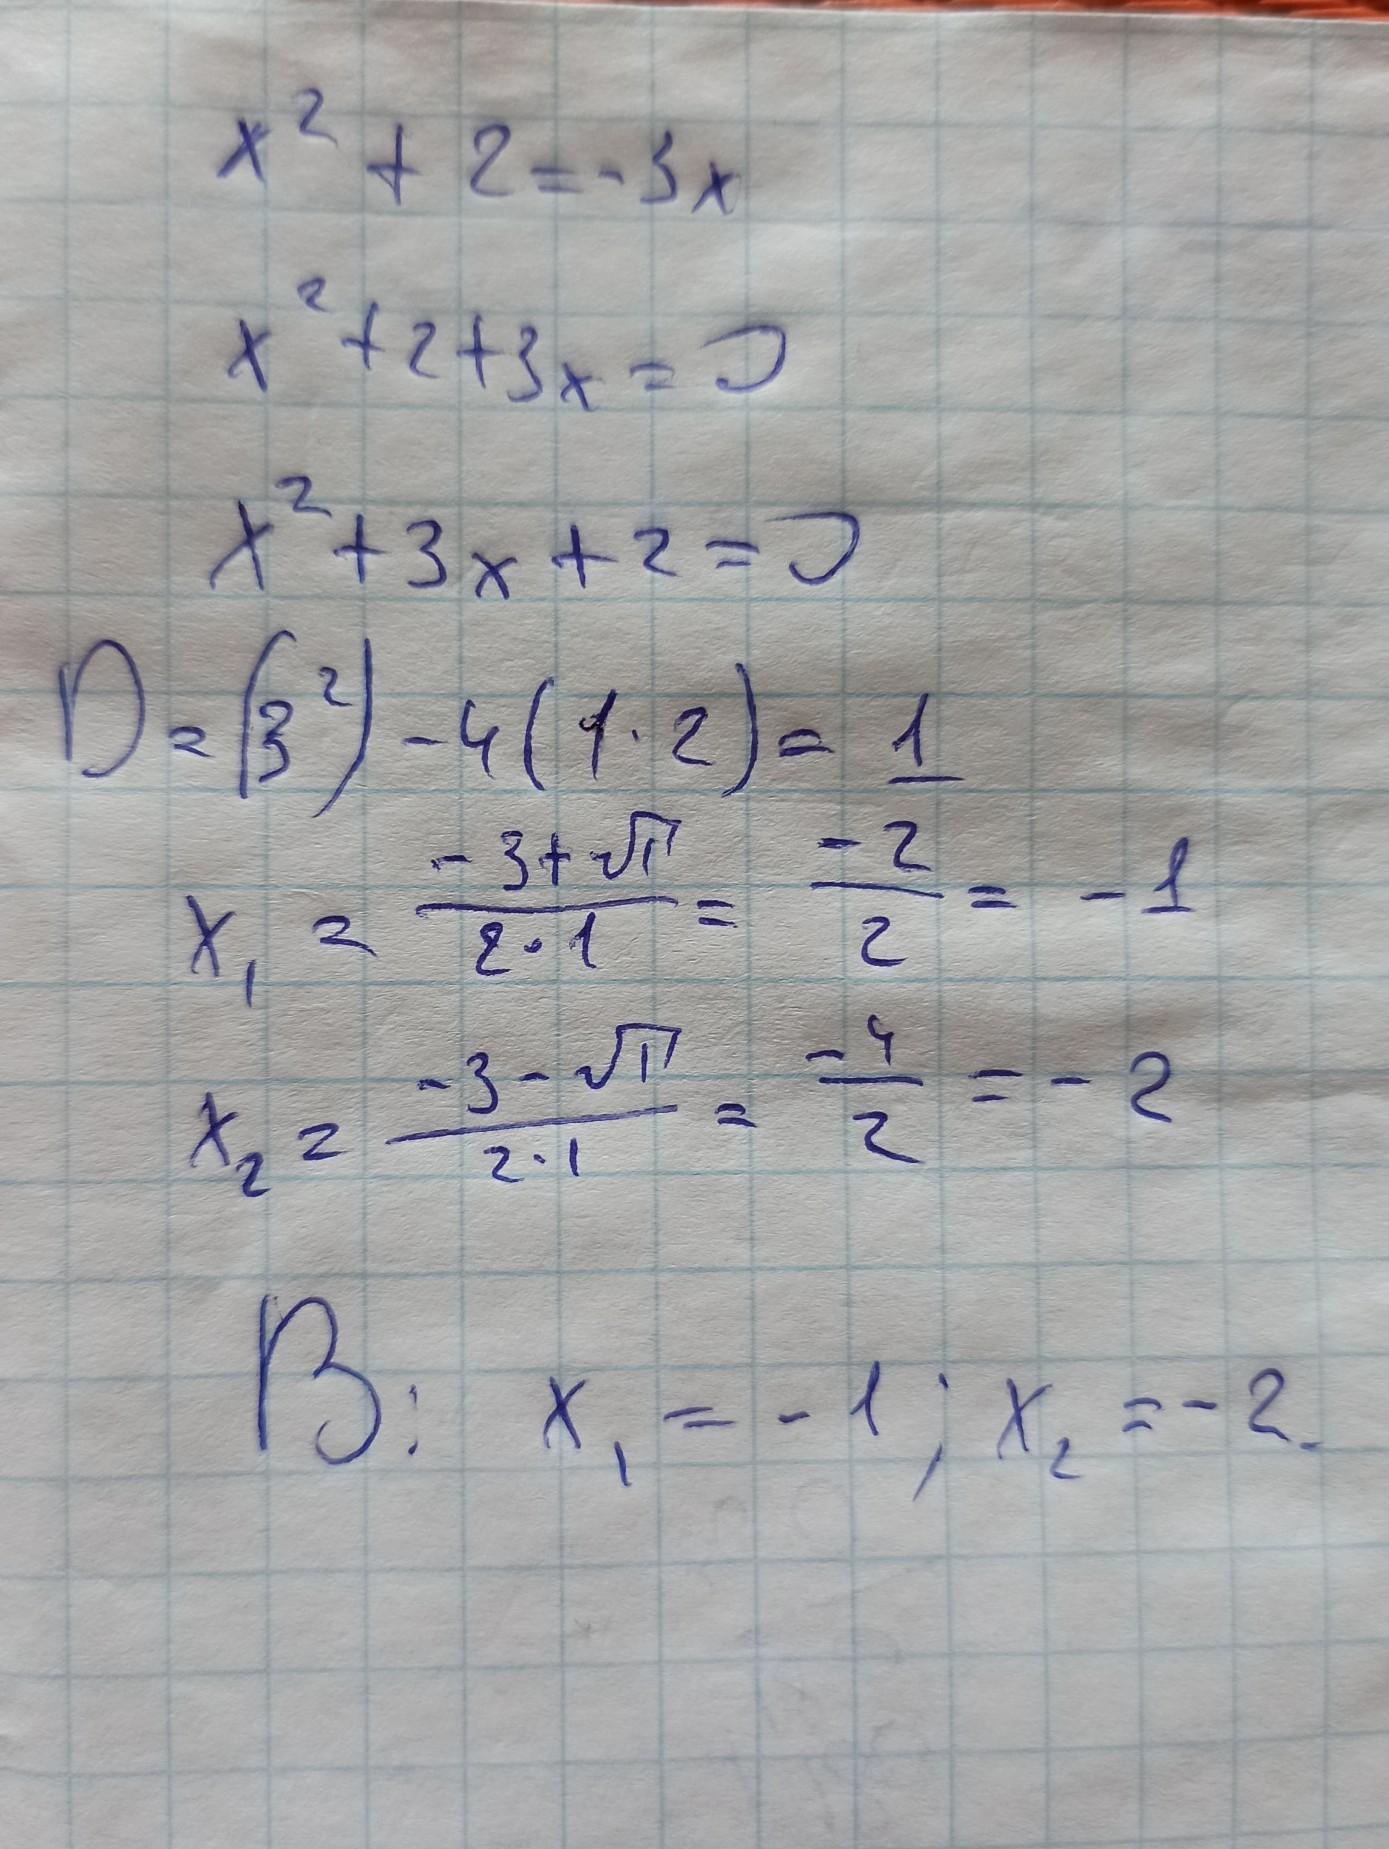 x² + 2 = -3x
x² + 2 + 3x = 0
x² + 3x + 2 = 0
D = (3²) - 4(1·2) = 1
x₁ = (-3+√1)/(2·1) = -2/2 = -1
x₂ = (-3-√1)/(2·1) = -4/2 = -2
В: x₁ = -1; x₂ = -2.